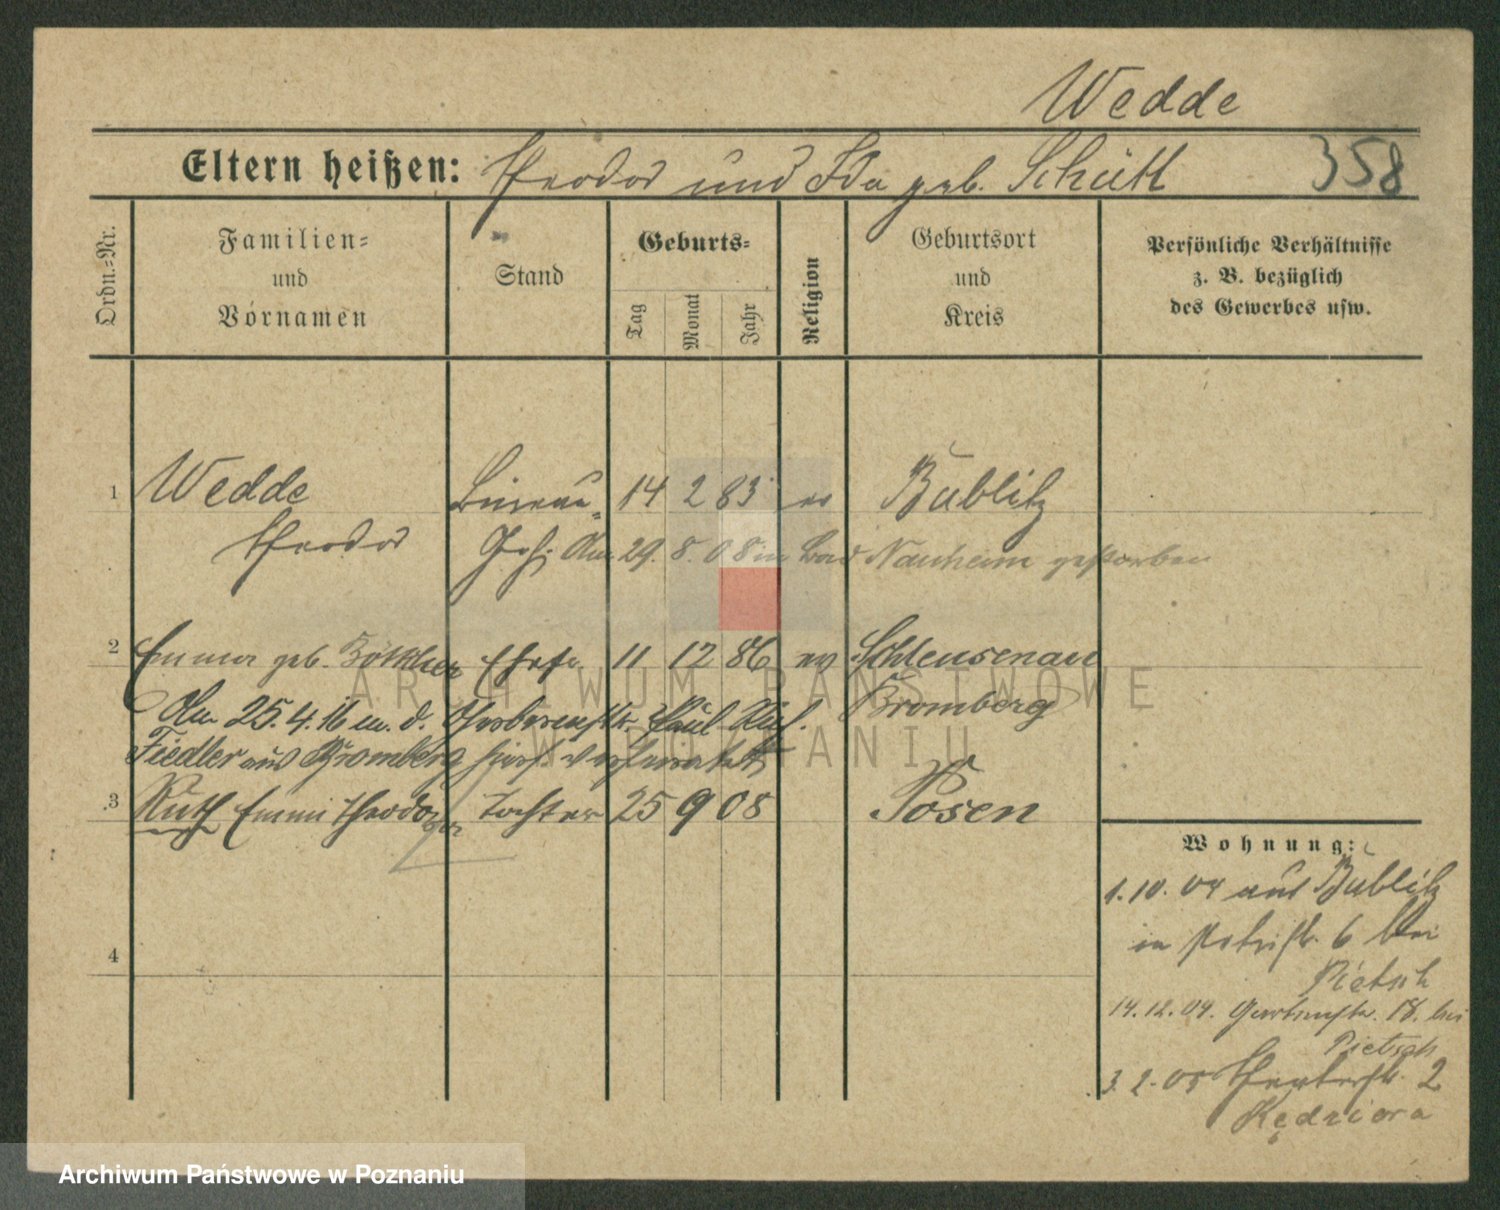 Wedde
Eltern heißen: Theodor und Ida geb. Schütt 358
Ordn.-Nr.
Familien-
und
Vornamen
Stand
Geburts-
Tag
Monat
Jahr
Religion
Geburtsort
und
Kreis
Persönliche Verhältnisse
z. B. bezüglich
des Gewerbes usw.
1 Wedde Bureau- 14 2 83 ev Bublitz
Theodor Geh. Am 29. 8. 08 in Bad Nauheim gestorben
2 Emma geb. Ehefr. 11 12 86 ev Schleusenau
Bromberg
Am 25.4.16 m. d. Paul
Fiedler aus Bromberg hier verheiratet
3 Ruth Emmi Theodora Tochter 25 9 08 Posen
4
Wohnung:
1.10.04 aus Bublitz
in Petristr. 6 bei
Pietsch
14.12.04. Gartenstr. 18. bei
Pietsch
3.2.05 Theaterstr. 2
Kędziora
ARCHIWUM PAŃSTWOWE
W POZNANIU
Archiwum Państwowe w Poznaniu